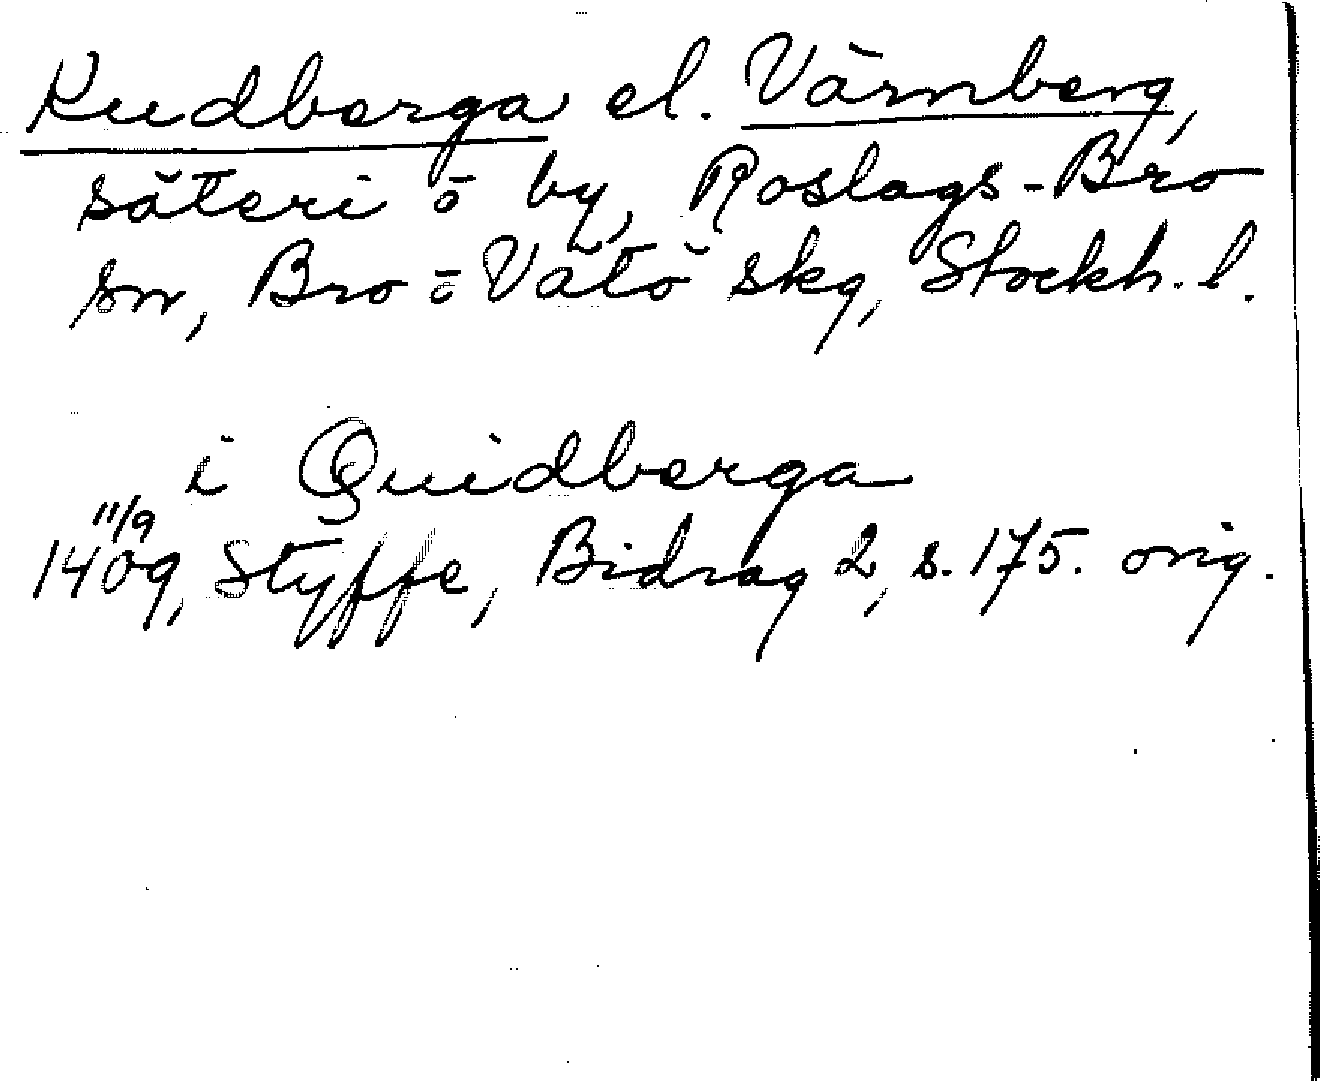 Kudberga el. Värnberg,
säteri o by, Roslags-Bro
sn, Bro o Vätö skg, Stockh. l.
i Quidberga
11/9
1409, Styffe, Bidrag 2, s. 175. orig.